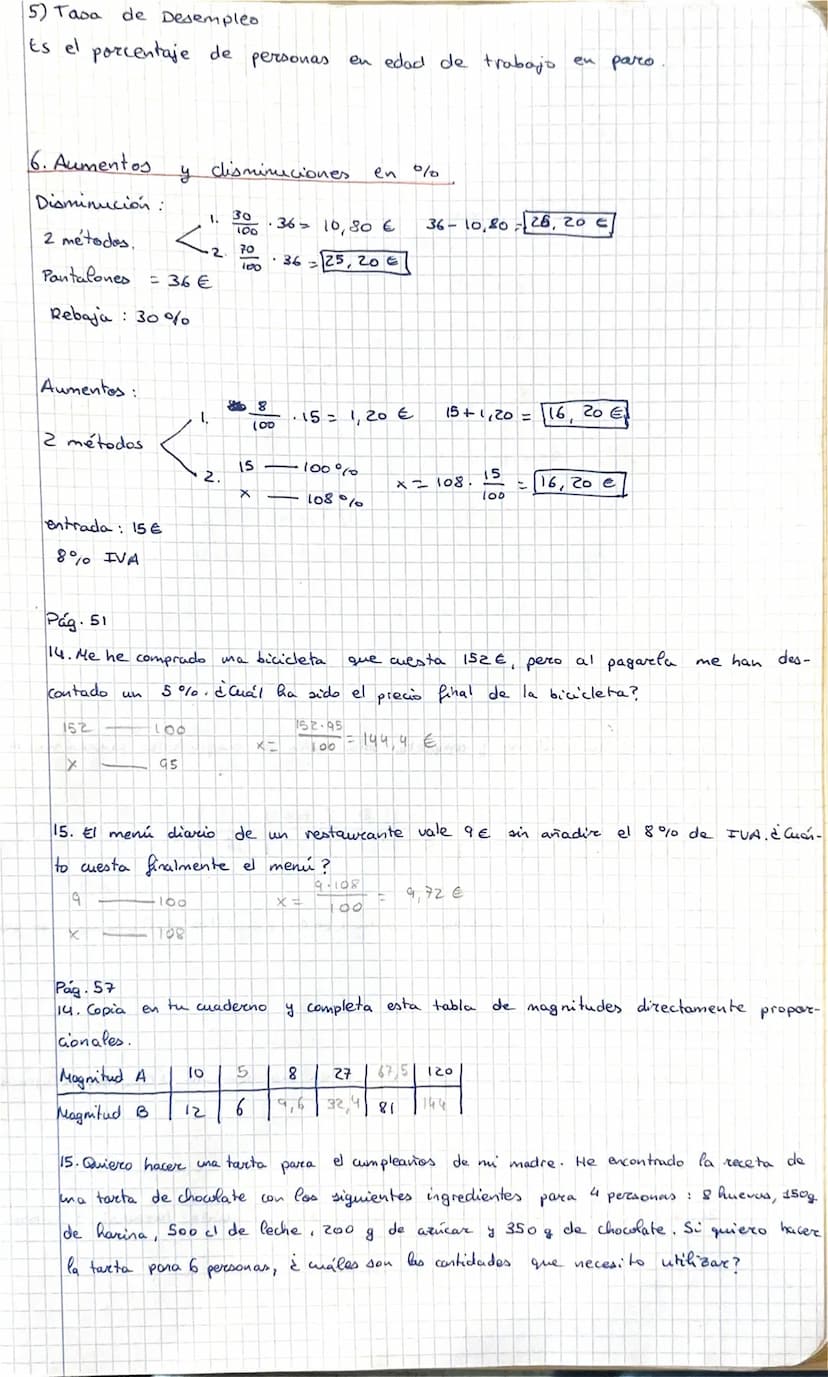 5) Tasa de Desempleo
Es el porcentaje de personas en edad de trabajo en paro.
6. Aumentos y disminuciones en %
Disminución:
2 métodos.
1. 30/100 · 36 = 10,80 € 36 - 10,80 = 25,20 €
2. 70/100 · 36 = 25,20 €
Pantalones = 36 €
Rebaja : 30 %
Aumentos :
2 métodos
1. 8/100 · 15 = 1,20 € 15 + 1,20 = 16,20 €
2. 15 — 100 %
x — 108 % x = 108 · 15/100 = 16,20 €
entrada : 15 €
8% IVA
Pág. 51
14. Me he comprado una bicicleta que cuesta 152 €, pero al pagarla me han des-
contado un 5 %. ¿Cuál ha sido el precio final de la bicicleta?
152 — 100
x — 95 x = 152·95/100 = 144,4 €
15. El menú diario de un restaurante vale 9 € sin añadir el 8 % de IVA. ¿Cuán-
to cuesta finalmente el menú?
9 — 100
x — 108 x = 9·108/100 = 9,72 €
Pág. 57
14. Copia en tu cuaderno y completa esta tabla de magnitudes directamente propor-
cionales.
Magnitud A | 10 | 5 | 8 | 27 | 67,5 | 120
Magnitud B | 12 | 6 | 9,6 | 32,4 | 81 | 144
15. Quiero hacer una tarta para el cumpleaños de mi madre. He encontrado la receta de
una tarta de chocolate con los siguientes ingredientes para 4 personas : 8 huevos, 150g
de harina, 500 cl de leche, 200 g de azúcar y 350 g de chocolate. Si quiero hacer
la tarta para 6 personas, ¿ cuáles son las cantidades que necesito utilizar?